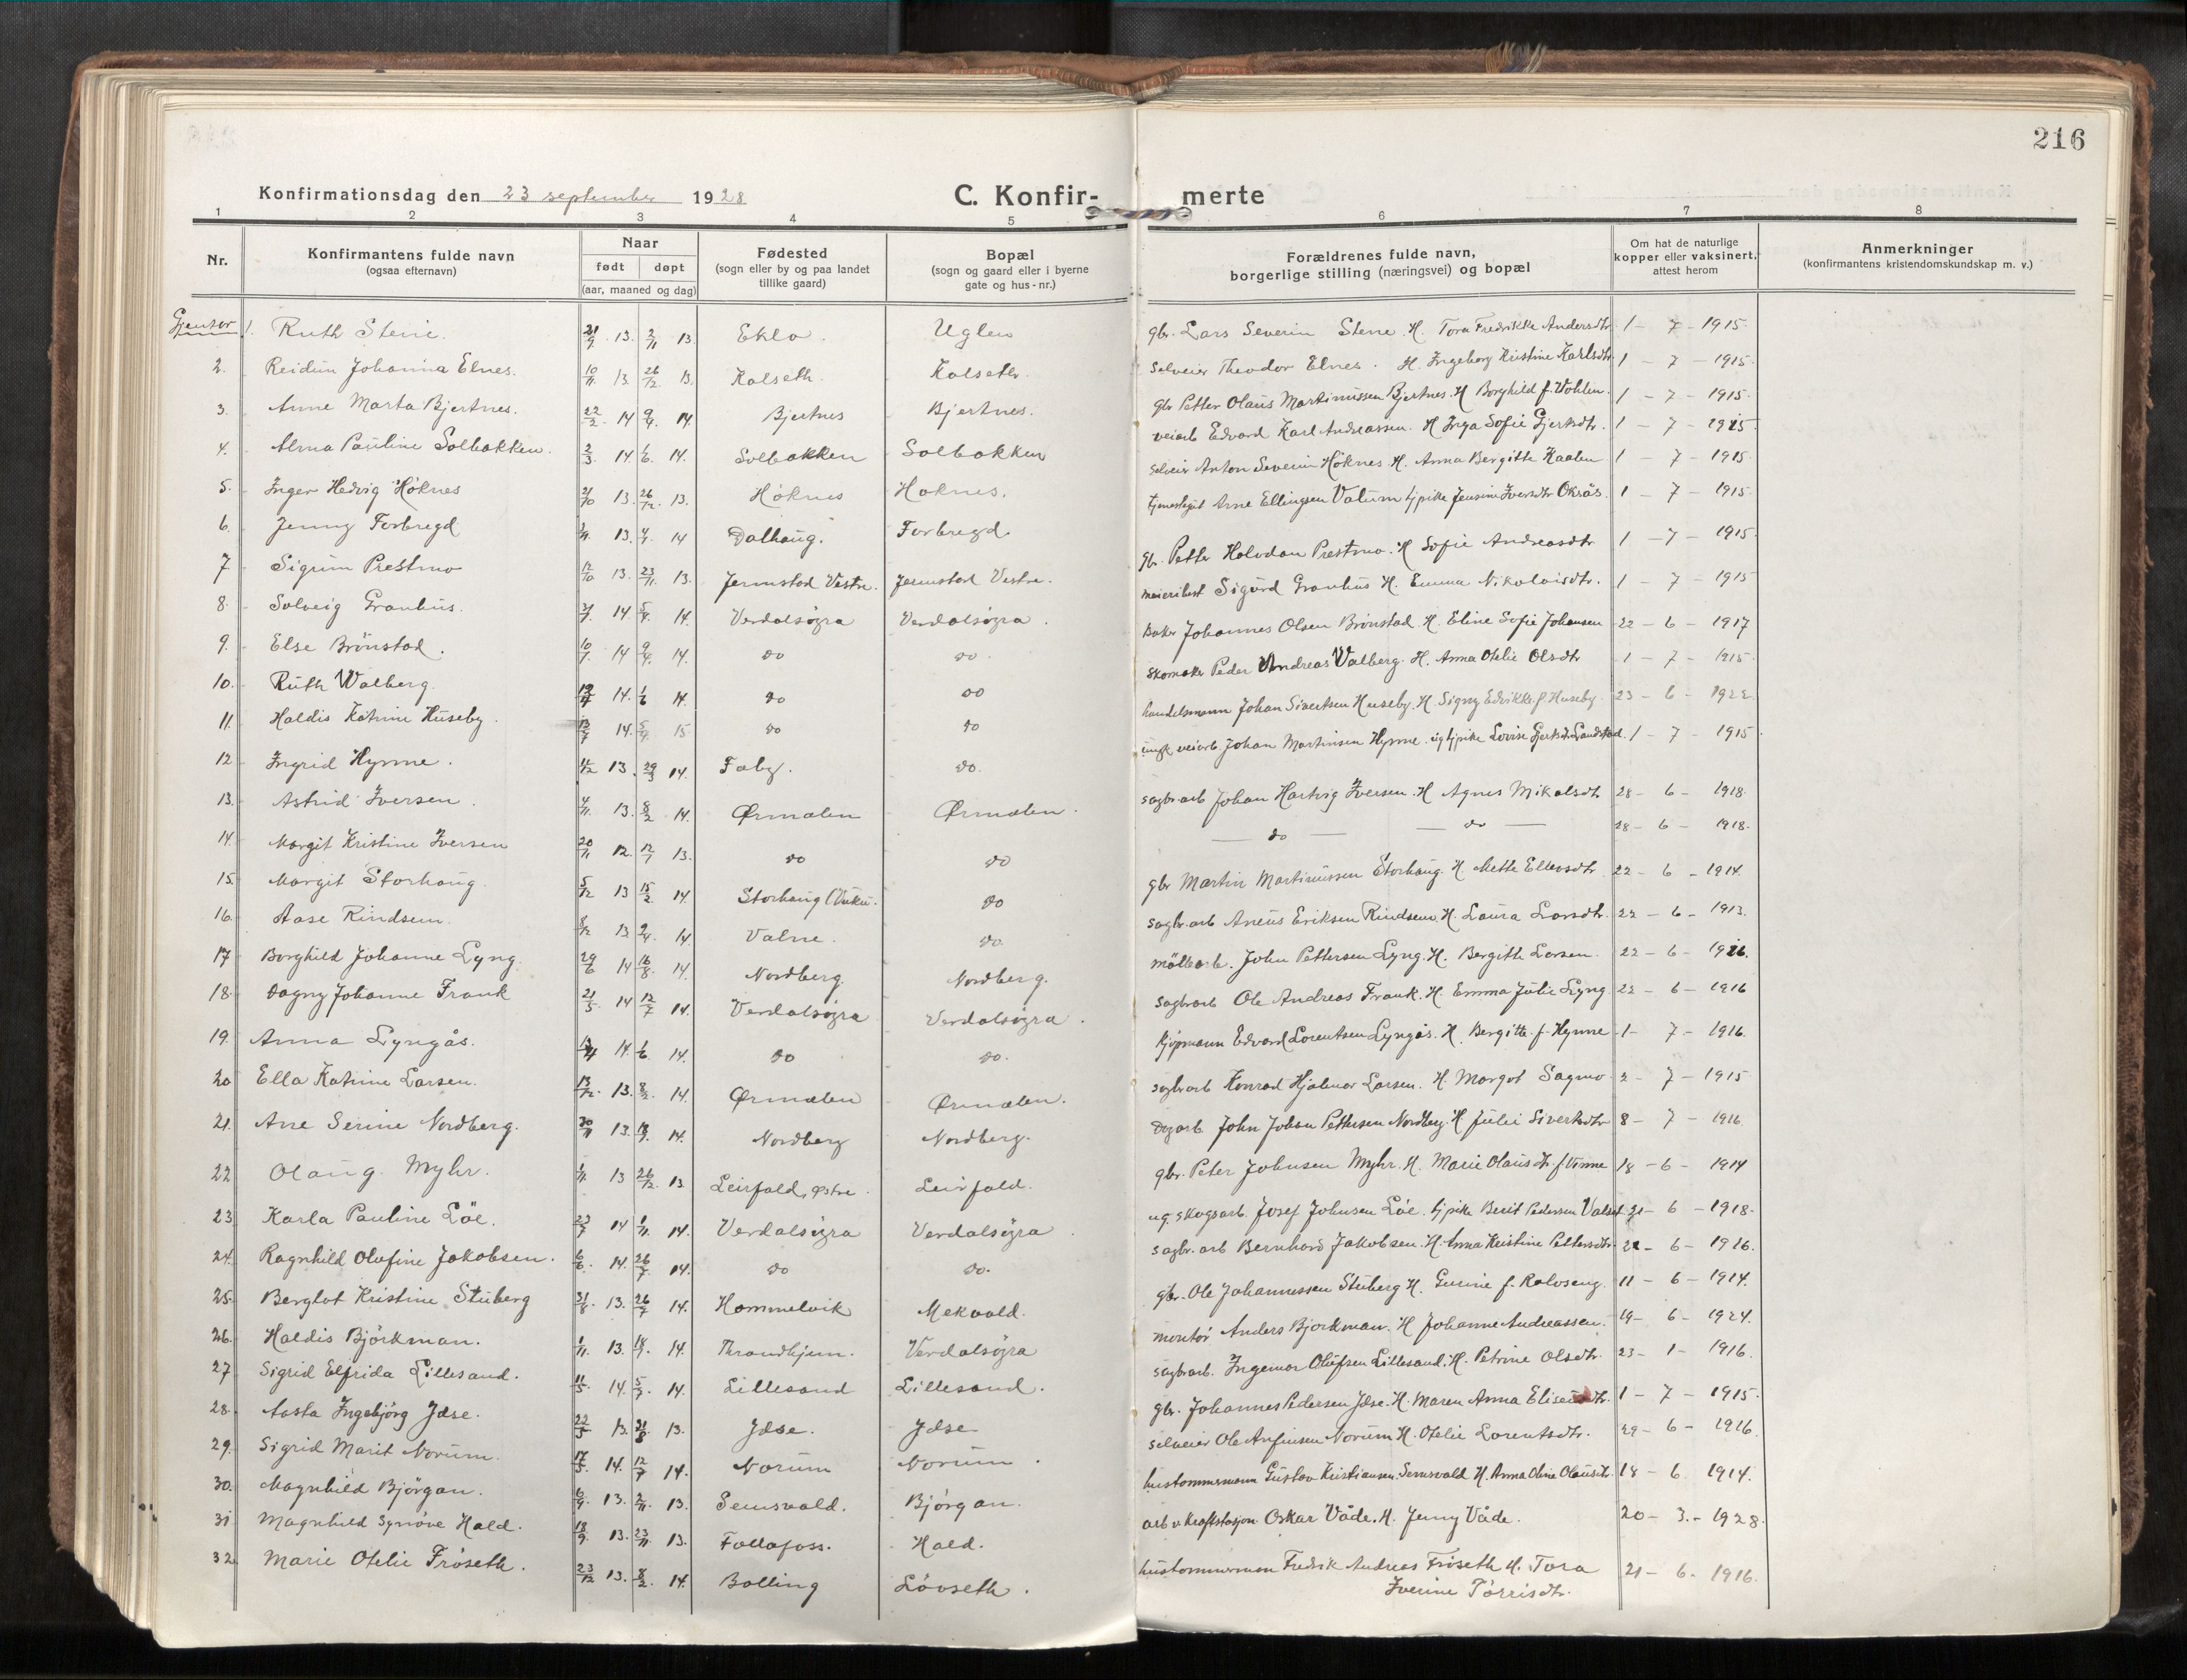 216
Konfirmationsdag den 23 september 1928
C. Konfirmerte
1 2 3 4 5 6 7 8
Nr.
Konfirmantens fulde navn
(ogsaa efternavn)
Naar
født døpt
(aar, maaned og dag)
Fødested
(sogn eller by og paa landet
tillike gaard)
Bopæl
(sogn og gaard eller i byerne
gate og hus-nr.)
Forældrenes fulde navn,
borgerlige stilling (næringsvei) og bopæl
Om hat de naturlige
kopper eller vaksinert,
attest herom
Anmerkninger
(konfirmantens kristendomskundskap m. v.)
Gjenter
1. Ruth Stene. 13. 2/11 13. Eklo. Uglen gbr. Lars Severin Stene. H. Tora Fredrikke Andersdtr. 1 - 7 - 1915.
2. Reidun Johanna Elnes. 10/11 13. 26/12 13. Kalseth. Kalseth. selveier Theodor Elnes. H. Ingeborg Kristine Karlsdtr. 1 - 7 - 1915.
3. Anne Marta Bjertnes. 22/2 14 9/4 14. Bjertnes Bjertnes. gbr Petter Olaus Martinussen Bjertnes. H Borghild f. Wohlen. 1 - 7 - 1915.
4. Alma Pauline Solbakken. 2/3 14. 1/6 14. Solbakken Solbakken veiarb Edvard Karl Andreassen. H Inga Sofie Gjertsdtr. 1 - 7 - 1915.
5. Inger Hedvig Höknes 2/10 13. 26/12 13. Höknes Höknes. selveier Anton Severin Höknes. H. Anna Bergitte Kaalen 1 - 7 - 1915.
6. Jenny Forbregd 13. 14 Dalhaug. Forbregd. Arne Ellingsen Valum tjpike Jensine Iversdtr Oksås. 1 - 7 - 1915.
7 Sigrun Prestmo 12/10 13. 23/11 13. Jermstad Vestre. Jermstad Vestre. gbr. Petter Halvdan Prestmo. H Sofie Andreasdtr 1 - 7 - 1915.
8. Solveig Granhus. 14 5/4 14. Verdalsøgra Verdalsøgra. meieribest Sigurd Granhus H. Emma Nikolaisdtr. 1 - 7 - 1915
9. Else Brönstad. 10/1 14 9/4 14. do do. Baker Johannes Olsen Brönstad. H. Eline Sofie Johansen 22 - 6 - 1917
10. Ruth Walberg 14. 1/6 14. do do skomaker Peder Andreas Walberg. H. Anna Otelie Olsdtr 1 - 7 - 1915.
11. Haldis Katrine Huseby. 14. 15 do do handelsmann Johan Sivertsen Huseby. H. Signy Edvikke f. Huseby. 23 - 6 - 1922.
12 Ingrid Hynne. 13. 29/3 14. Faby. do. ungk veiarb. Johan Martinsen Hynne. og tjpike Lovise Gjertsdtr. Landstad. 1 - 7 - 1915.
13. Astrid Iversen. 4/11 13. 8/2 14. Ørmælen Ørmælen. sagbr.arb Johan Hartvig Iversen. H Agnes Mikalsdtr 28 - 6 - 1918.
14. Margit Kristine Iversen 20/11 12. 12/1 13. do do — do — — do — 28 - 6 - 1918.
15. Margit Storhaug. 5/12 13 15/2 14. Storhaug (Vuku. do gbr Martin Martinussen Storhaug. H. Mette Ellevsdtr 22 - 6 - 1914.
16. Aase Rindsem. 8/12 13 2/4 14. Valne. do. sagbr.arb Aneus Eriksen Rindsem. H. Laura Larsdtr. 22 - 6 - 1913.
17 Borghild Johanne Lyng. 29/6 14 16/8 14. Nordberg. Nordberg. möllearb. John Pettersen Lyng. H. Bergitte Larsen. 22 - 6 - 1916.
18. Dagny Johanne Frank 21/5 14 12/7 14. Verdalsøgra Verdalsøgra. sagbrarb Ole Andreas Frank. H. Emma Julie Lyng 22 - 6 - 1916
19. Anna Lyngås. 14. 1/6 14. do do. kjöpmann Edvard Lorentsen Lyngås. H. Bergitte f. Hynne 1 - 7 - 1916.
20 Ella Katrine Larsen. 13/12 13. 8/2 14. Ørmælen Ørmælen. sagbrarb Konrad Hjalmar Larsen. H. Margot Sagmo 2 - 7 - 1915
21. Ane Serine Nordberg. 13. 14. Nordberg Nordberg. John Johan Pettersen Nordberg. H Julie Sivertsdtr 8 - 7 - 1916.
22 Olaug Myhr. 1/11 13 26/12 13 Leirfald, østre. Leirfald. gbr. Peter Johnsen Myhr. H. Marie Olausdtr f. Vinne 18 - 6 - 1914
23. Karla Pauline Löe. 23/7 14 1/11 14. Verdalsöyra Verdalsöyra. ug. skogsarb. Josef Johnsen Löe. tjpike Berit Pedersen Valset 21 - 6 - 1918.
24. Ragnhild Olufine Jakobsen. 6/6 14. 26/7 14. do do. sagbr.arb Bernhard Jakobsen. H. Anna Kristine Pettersdtr. 22 - 6 - 1916.
25. Berglot Kristine Stuberg 31/8 13. 26/7 14. Hommelvik Mekvald. gbr. Ole Johannessen Stuberg H. Gurine f. Rolvseng. 11 - 6 - 1914.
26. Haldis Björkman. 1/11 13. 14. Throndhjem. Verdalsöyra montör Anders Björkman. H Johanne Andreassen. 19 - 6 - 1924.
27 Sigrid Elfrida Lillesand. 11/5 14. 5/7 14. Lillesand Lillesand. sagbrarb. Ingemar Olufsen Lillesand. H. Petrine Olsdtr. 23 - 1 - 1916.
28. Aasta Ingebjörg Ydse. 22/5 13. 13. Ydse. Ydse gbr. Johannes Pedersen Ydse. H. Maren Anna Eliseusdtr. 1 - 7 - 1915.
29. Sigrid Marit Norum. 17/5 14. 12/7 14. Norum Norum. selveier Ole Arfinsen Norum H. Otelie Lorentsdtr. 29 - 6 - 1916.
30. Magnhild Björgan. 6/9 13. 2/11 13. Semsvald. Björgan. hustommermann Gustav Kristiansen Semsvald H. Anna Oline Olausdtr. 18 - 6 1914.
31 Magnhild Synnöve Hald. 18/9 13. 23/11 13. Follafoss. Hald. arb v. Kraftstasjon Oskar Våde. H. Jenny Våde. 20 - 3. - 1928.
32. Marie Otelie Fröseth. 23/12 13. 8/2 14. Bolling Lövseth. hustommermann Fredrik Andreas Fröseth H. Tora 21 - 6 - 1916.
Iverine Törrisdtr.